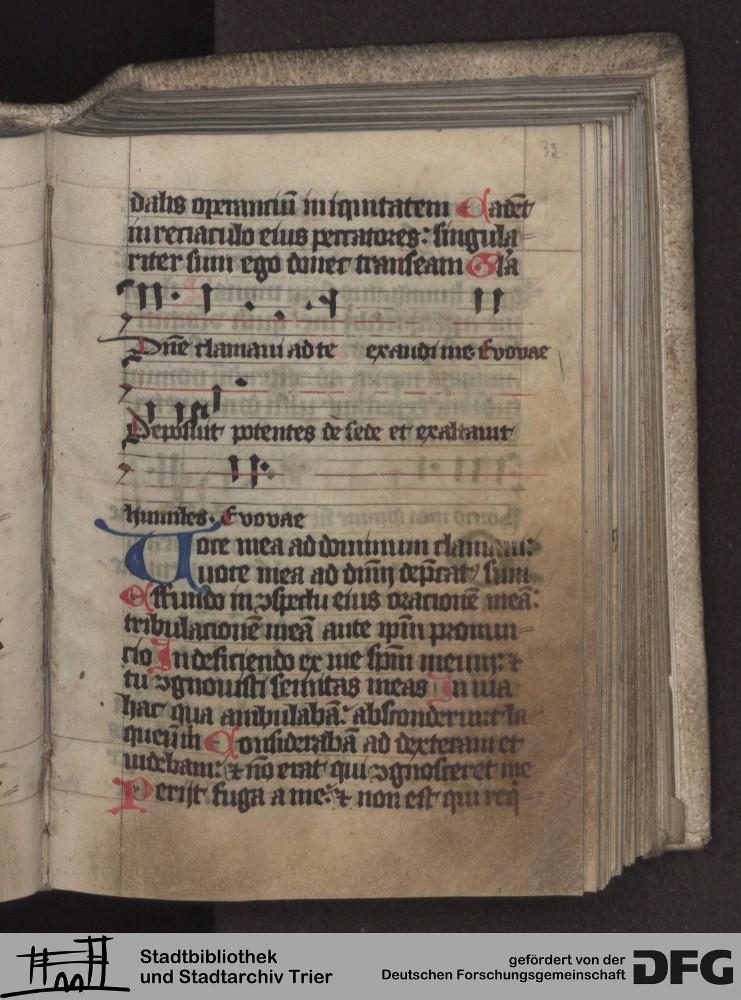 32
dalis operanciū iniquitatem Cadēt
in reciaculo eius peccatores: singula
riter sum ego donec transeam Gl'a
Dn̄e clamaui ad te exaudi me Evovae
Deposuit potentes de sede et exaltauit
humiles. Evovae
Uoce mea ad dominum clamaui:
uoce mea ad dn̄m dep̄cat' sum
Effundo in ꝯspectu eius oracionē meā:
tribulacionē meā ante ip̄m pronun
cio In deficiendo ex me sp̄m meum: ⁊
tu ꝯgnouisti semitas meas In uia
hac qua ambulabā: absconderunt la
queū m̄ Considerabā ad dexteram et
uidebam: ⁊ nō erat qui ꝯgnosceret me
Perijt fuga a me: ⁊ non est qui req̄
Stadtbibliothek
und Stadtarchiv Trier
gefördert von der
Deutschen Forschungsgemeinschaft
DFG